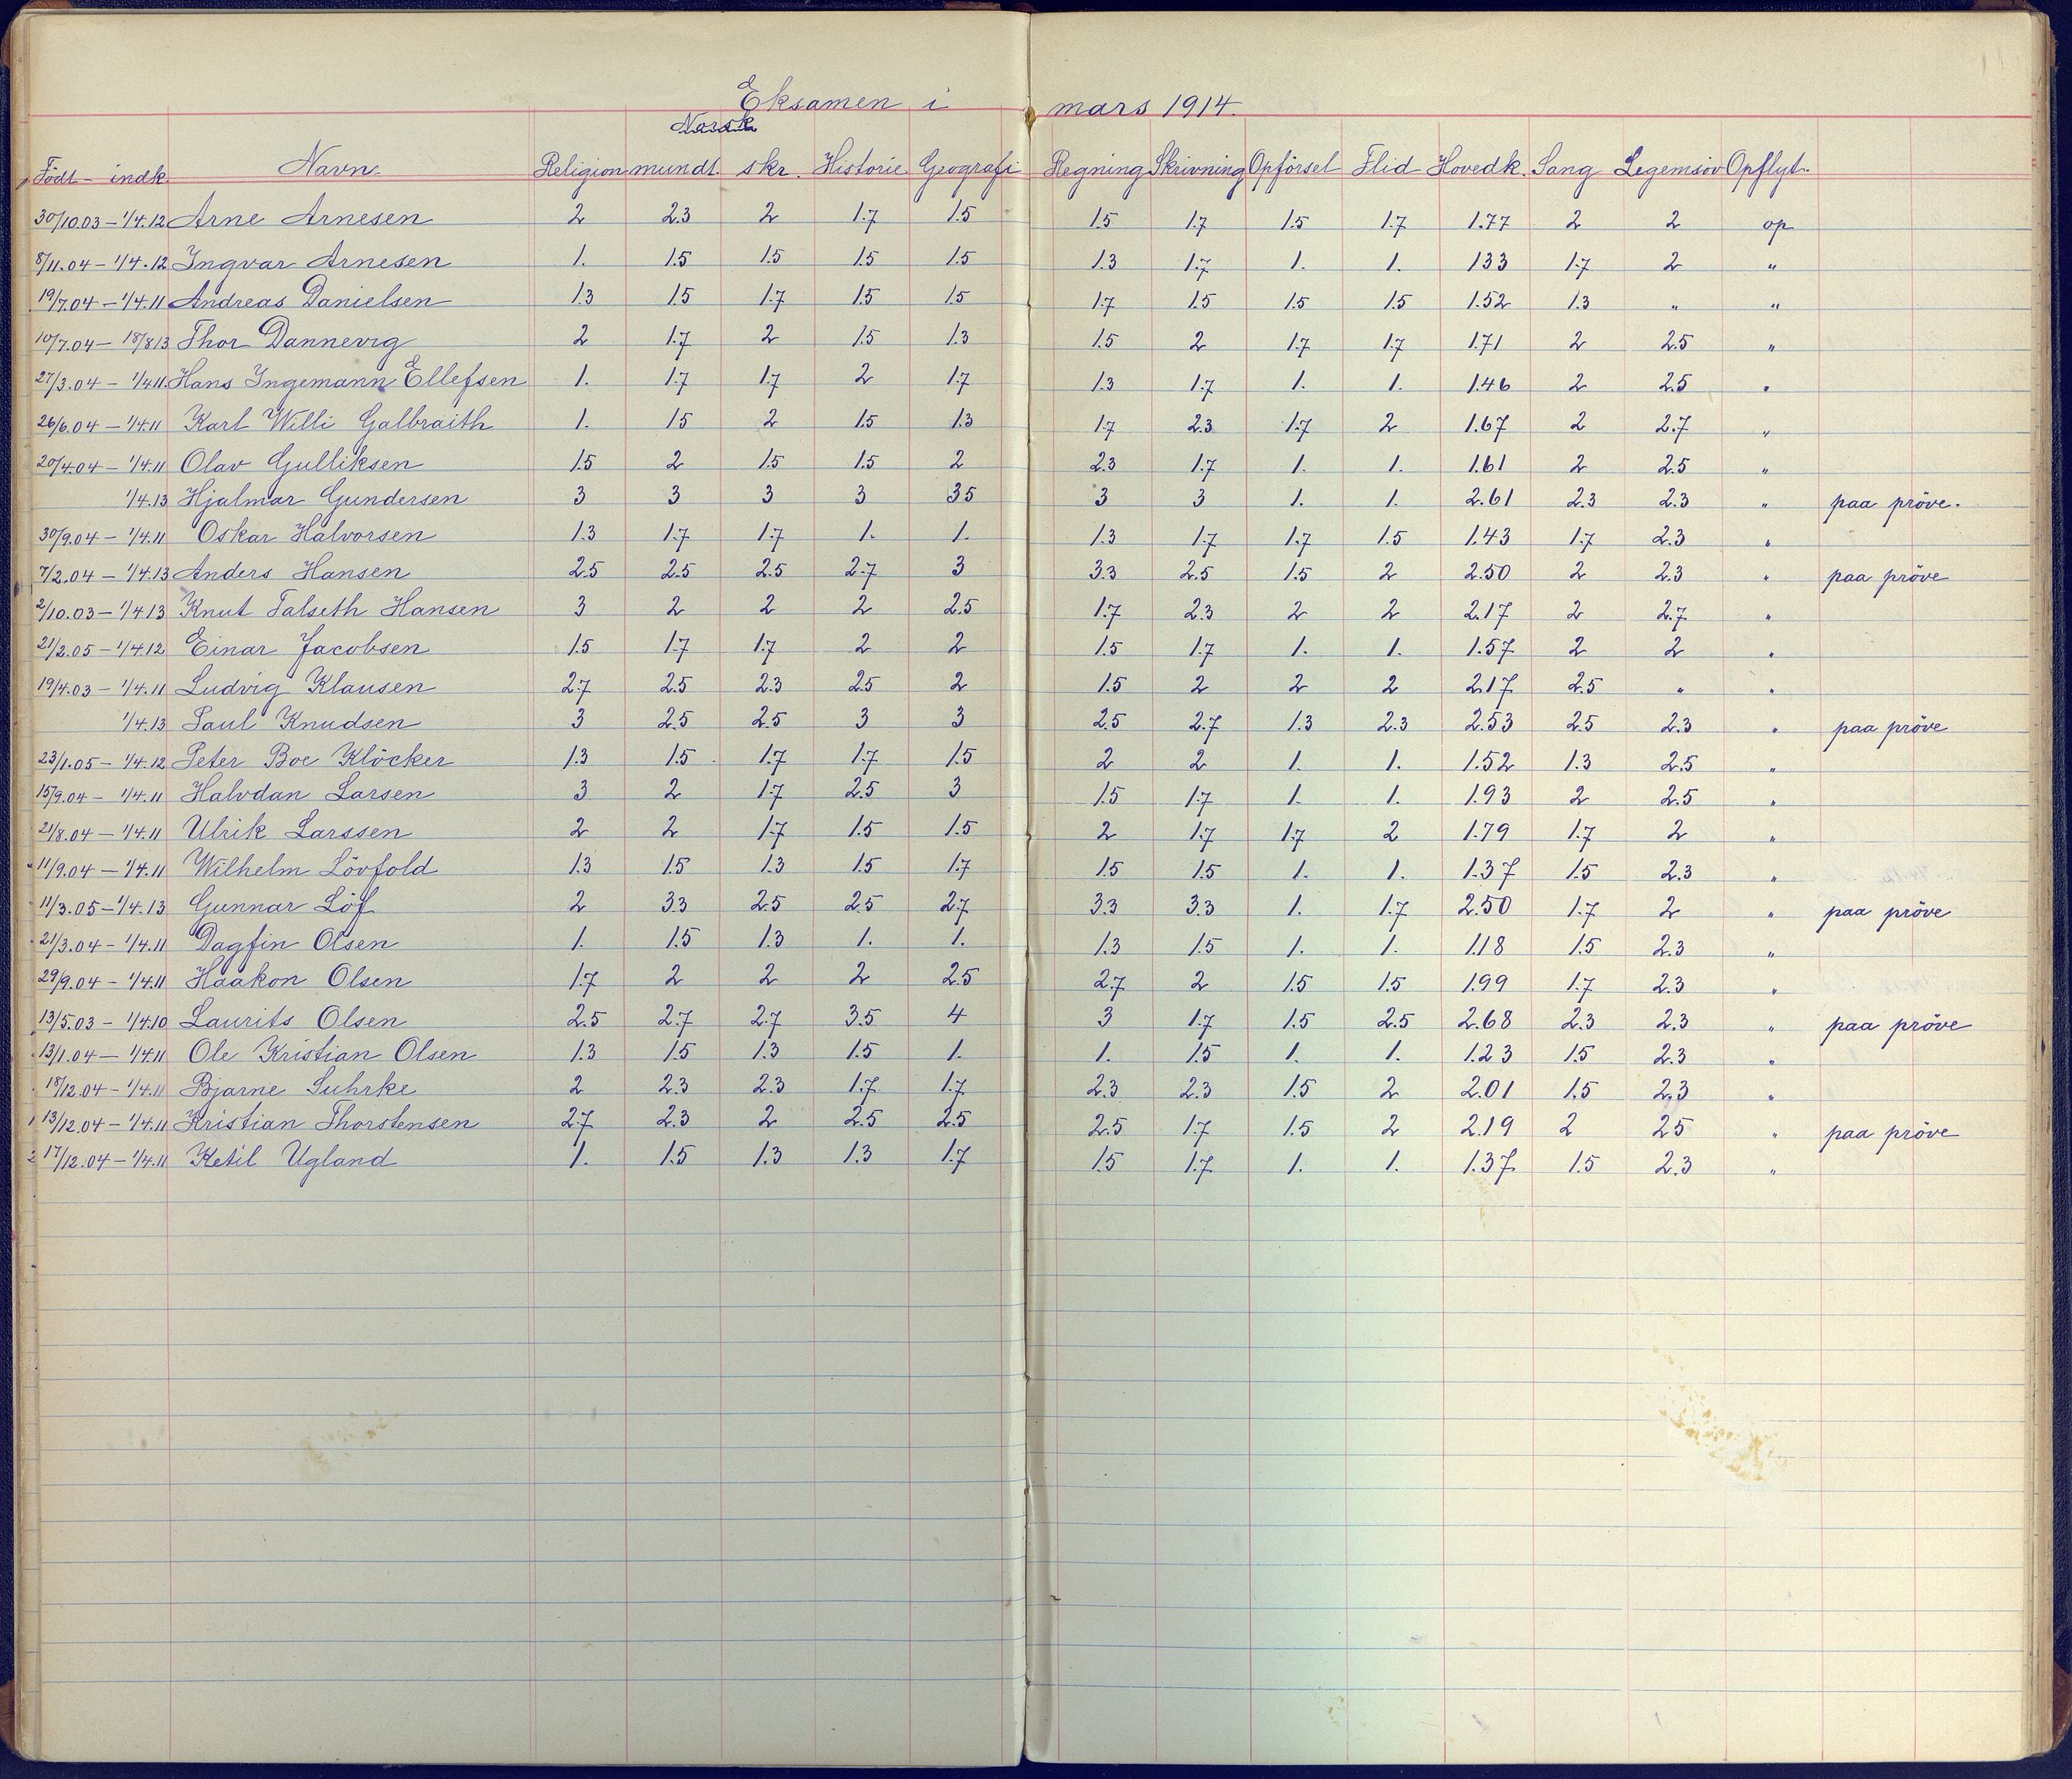 Eksamen i mars 1914.
Norsk
Födt - indk. Navn. Religion mundt. skr. Historie Geografi Regning Skrivning Opförsel Flid Hovedk. Sang Legemsöv Opflyt.
30/10.03 - 1/4.12 Arne Arnesen 2 2.3 2 1.7 1.5 1.5 1.7 1.5 1.7 1.77 2 2 op
8/11.04 - 1/4.12 Ingvar Arnesen 1. 1.5 1.5 1.5 1.5 1.3 1.7 1. 1. 1.33 1.7 2 "
19/7.04 - 1/4.11 Andreas Danielsen 1.3 1.5 1.7 1.5 1.5 1.7 1.5 1.5 1.5 1.52 1.3 " "
10/7.04 - 18/8 13 Thor Dannevig 2 1.7 2 1.5 1.3 1.5 2 1.7 1.7 1.71 2 2.5 "
27/3.04 - 1/4 11. Hans Ingemann Ellefsen 1. 1.7 1.7 2 1.7 1.3 1.7 1. 1. 1.46 2 2.5 "
26/6.04 - 1/4.11 Karl Willi Galbraith 1. 1.5 2 1.5 1.3 1.7 2.3 1.7 2 1.67 2 2.7 "
20/4.04 - 1/4.11 Olav Gulliksen 1.5 2 1.5 1.5 2 2.3 1.7 1. 1. 1.61 2 2.5 "
1/4.13 Hjalmar Gundersen 3 3 3 3 3.5 3 3 1. 1. 2.61 2.3 2.3 " paa pröve.
30/9.04 - 1/4.11 Oskar Halvorsen 1.3 1.7 1.7 1. 1. 1.3 1.7 1.7 1.5 1.43 1.7 2.3 "
7/2.04 - 1/4.13 Anders Hansen 2.5 2.5 2.5 2.7 3 3.3 2.5 1.5 2 2.50 2 2.3 " paa pröve
2/10.03 - 1/4 13 Knut Falseth Hansen 3 2 2 2 2.5 1.7 2.3 2 2 2.17 2 2.7 "
21/2.05 - 1/4.12 Einar Jacobsen 1.5 1.7 1.7 2 2 1.5 1.7 1. 1. 1.57 2 2 "
19/4.03 - 1/4.11 Ludvig Klausen 2.7 2.5 2.3 2.5 2 1.5 2 2 2 2.17 2.5 " "
1/4.13 Paul Knudsen 3 2.5 2.5 3 3 2.5 2.7 1.3 2.3 2.53 2.5 2.3 " paa pröve
23/1.05 - 1/4.12 Peter Boe Klöcker 1.3 1.5 1.7 1.7 1.5 2 2 1. 1. 1.52 1.3 2.5 "
15/9.04 - 1/4.11 Halvdan Larsen 3 2 1.7 2.5 3 1.5 1.7 1. 1. 1.93 2 2.5 "
21/8.04 - 1/4.11 Ulrik Larssen 2 2 1.7 1.5 1.5 2 1.7 1.7 2 1.79 1.7 2 "
11/9.04 - 1/4.11 Wilhelm Lövfold 1.3 1.5 1.3 1.5 1.7 1.5 1.5 1. 1. 1.37 1.5 2.3 "
11/3.05 - 1/4.13 Gunnar Löf 2 3.3 2.5 2.5 2.7 3.3 3.3 1. 1.7 2.50 1.7 2 " paa pröve
21/3.04 - 1/4.11 Dagfin Olsen 1. 1.5 1.3 1. 1. 1.3 1.5 1. 1. 1.18 1.5 2.3 "
29/9.04 - 1/4.11 Haakon Olsen 1.7 2 2 2 2.5 2.7 2 1.5 1.5 1.99 1.7 2.3 "
13/5.03 - 1/4.10 Laurits Olsen 2.5 2.7 2.7 3.5 4 3 1.7 1.5 2.5 2.68 2.3 2.3 " paa pröve
13/1.04 - 1/4.11 Ole Kristian Olsen 1.3 1.5 1.3 1.5 1. 1. 1.5 1. 1. 1.23 1.5 2.3 "
18/12.04 - 1/4.11 Bjarne Suhrke 2 2.3 2.3 1.7 1.7 2.3 2.3 1.5 2 2.01 1.5 2.3 "
13/12.04 - 1/4.11 Kristian Thorstensen 2.7 2.3 2 2.5 2.5 2.5 1.7 1.5 2 2.19 2 2.5 " paa pröve
17/12.04 - 1/4.11 Ketil Ugland 1. 1.5 1.3 1.3 1.7 1.5 1.7 1. 1. 1.37 1.5 2.3 "